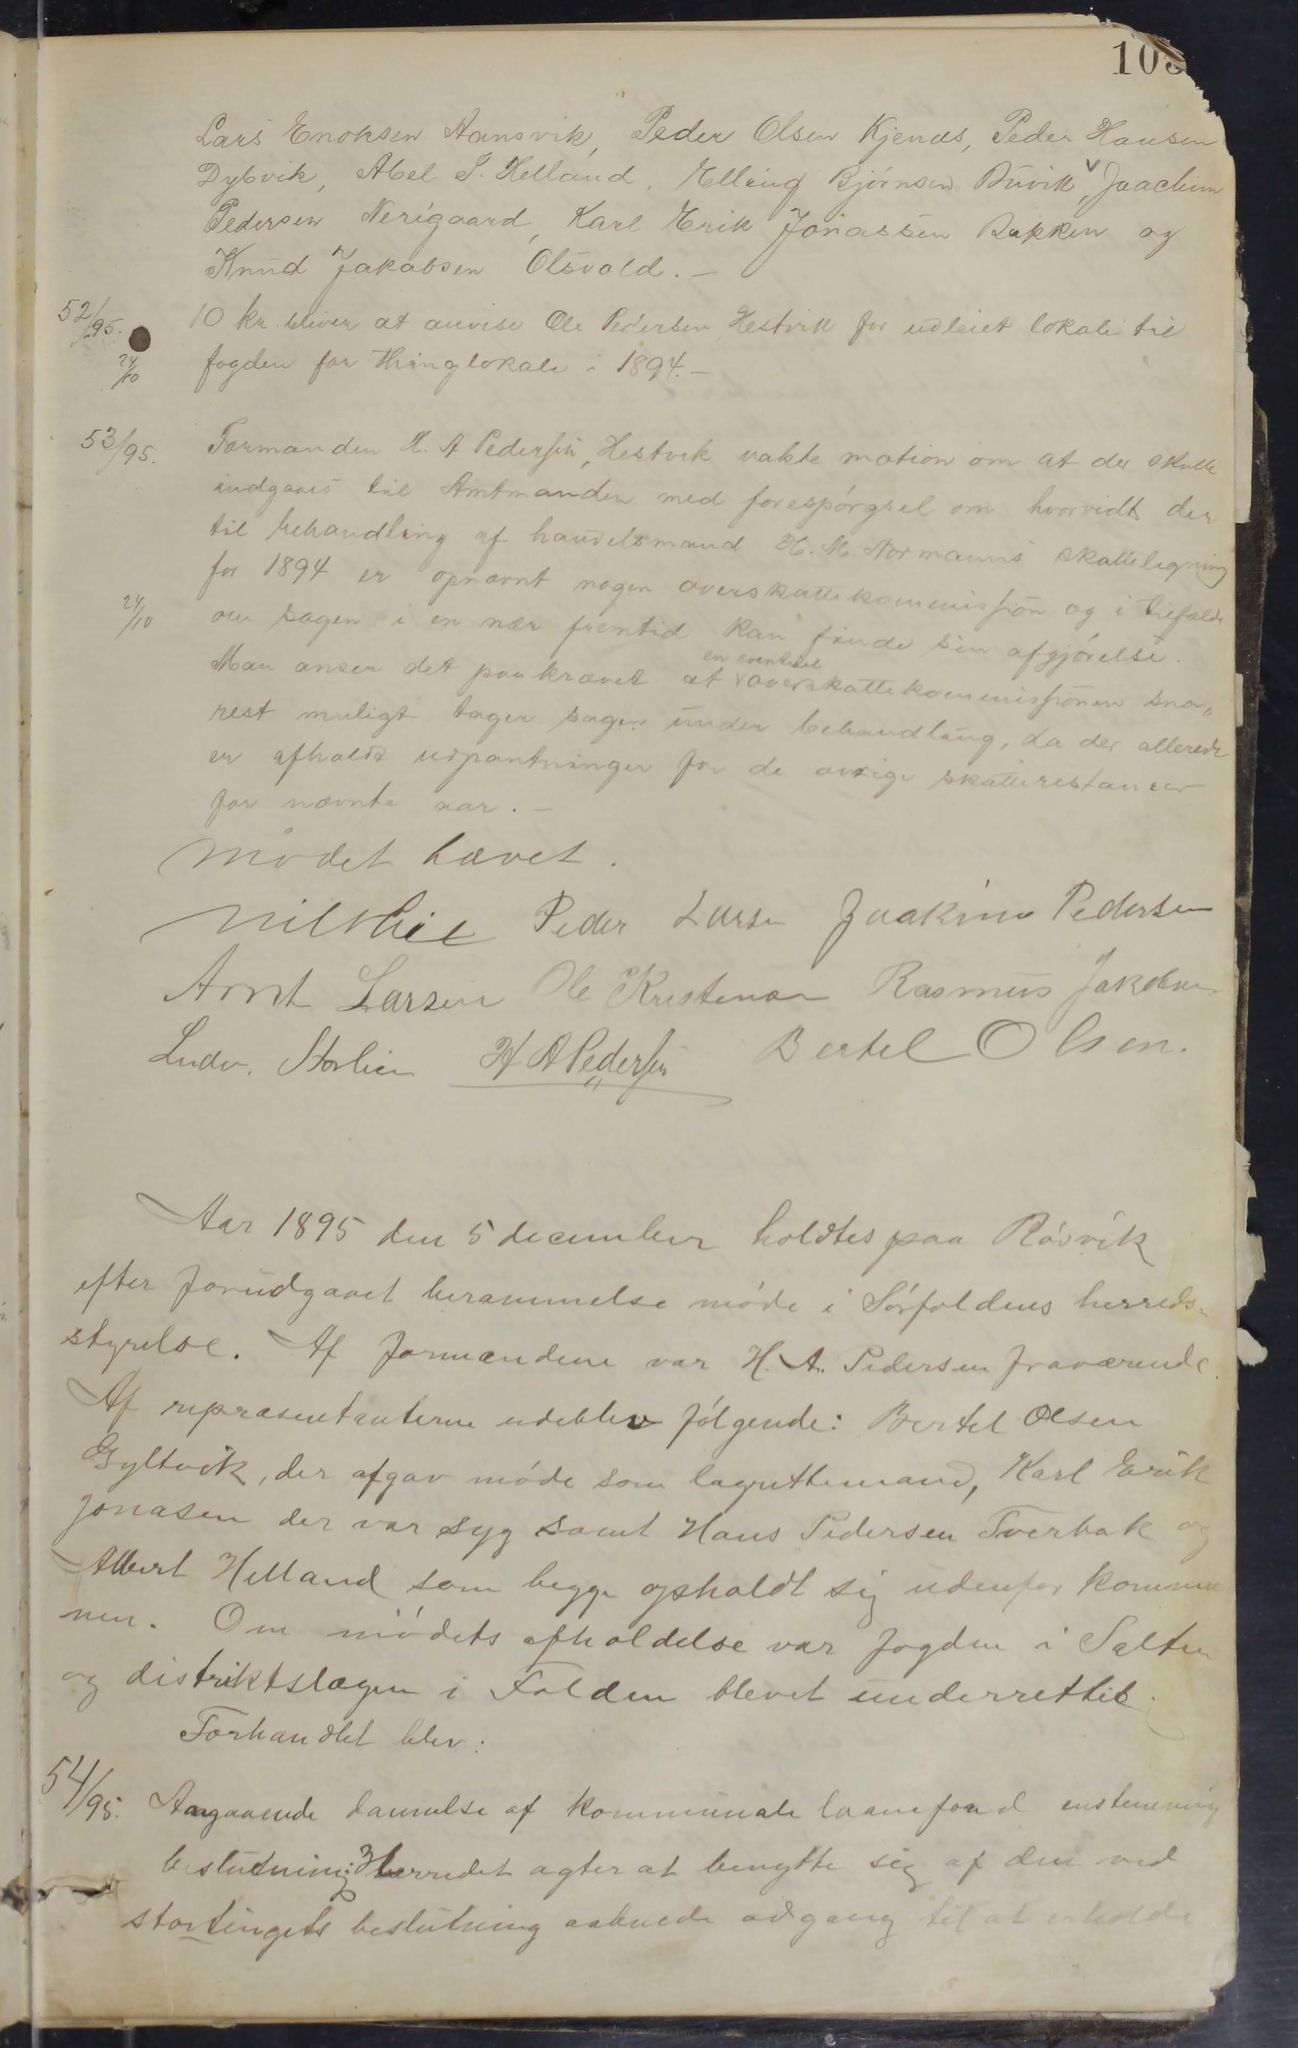 103
Lars Enoksen Aansvik, Peder Olsen Kjenæs, Peder Hansen
Dybvik, Abel S. Helland, Elling Bjørnsen Buvik, Joachim
Pedersen Nerigaard, Karl Erik Jonassen Bakken og
Knud Jakobsen Olsvold. -
52/95. 10 kr. bliver at anvise Ole Pedersen Hestvik for udleiet lokale til
24/10 fogden for thinglokale i 1894. -
53/95. Formanden H. A Pedersen, Hestvik vakte motion om at der skulle
indgaaes til Amtmanden med forespørgsel om hvorvidt der
til behandling af handelsmand H. M. Normanns skatteligning
for 1894 er opnævnt nogen overskattekommission og i tilfælde
24/10 om sagen i en nær fremtid kan finde sin afgjørelse.
Man anser det paakrævet at en eventuel overskattekommissionen sna„
rest muligt tager sagen under behandling, da der allerede
er afholdt udpantninger for de øvrige skatterestancer
for nævnte aar. -
Mødet hævet.
Peder Larsen Joakim Pedersen
Arnt Larsen Ole Kristensen Rasmus Jakobsen
Ludv. Storlien H A Pedersen Bertel Olsen.
Aar 1895 den 5 december holdtes paa Røsvik
efter forudgaaet berammelse møde i Sørfoldens herreds-
styrelse. Af formændene var H. A. Pedersen fraværende.
Af repræsentanterne udeblev følgende: Bertel Olsen
Gyltvik, der afgav møde som lagrettemand, Karl Erik
Jonasen der var syg samt Hans Pedersen Tverbak og
Albert Helland som begge opholdt sig udenfor kommu
nen. Om mødets afholdelse var fogden i Salten
og distriktslægen i Folden blevet underrettet.
Forhandlet blev:
54/95. Angaaende dannelse af kommunale laanefond enstemmig
beslutning: Herredet agter at benytte sig af den ved
stortingets beslutning aabnede adgang til at erholde